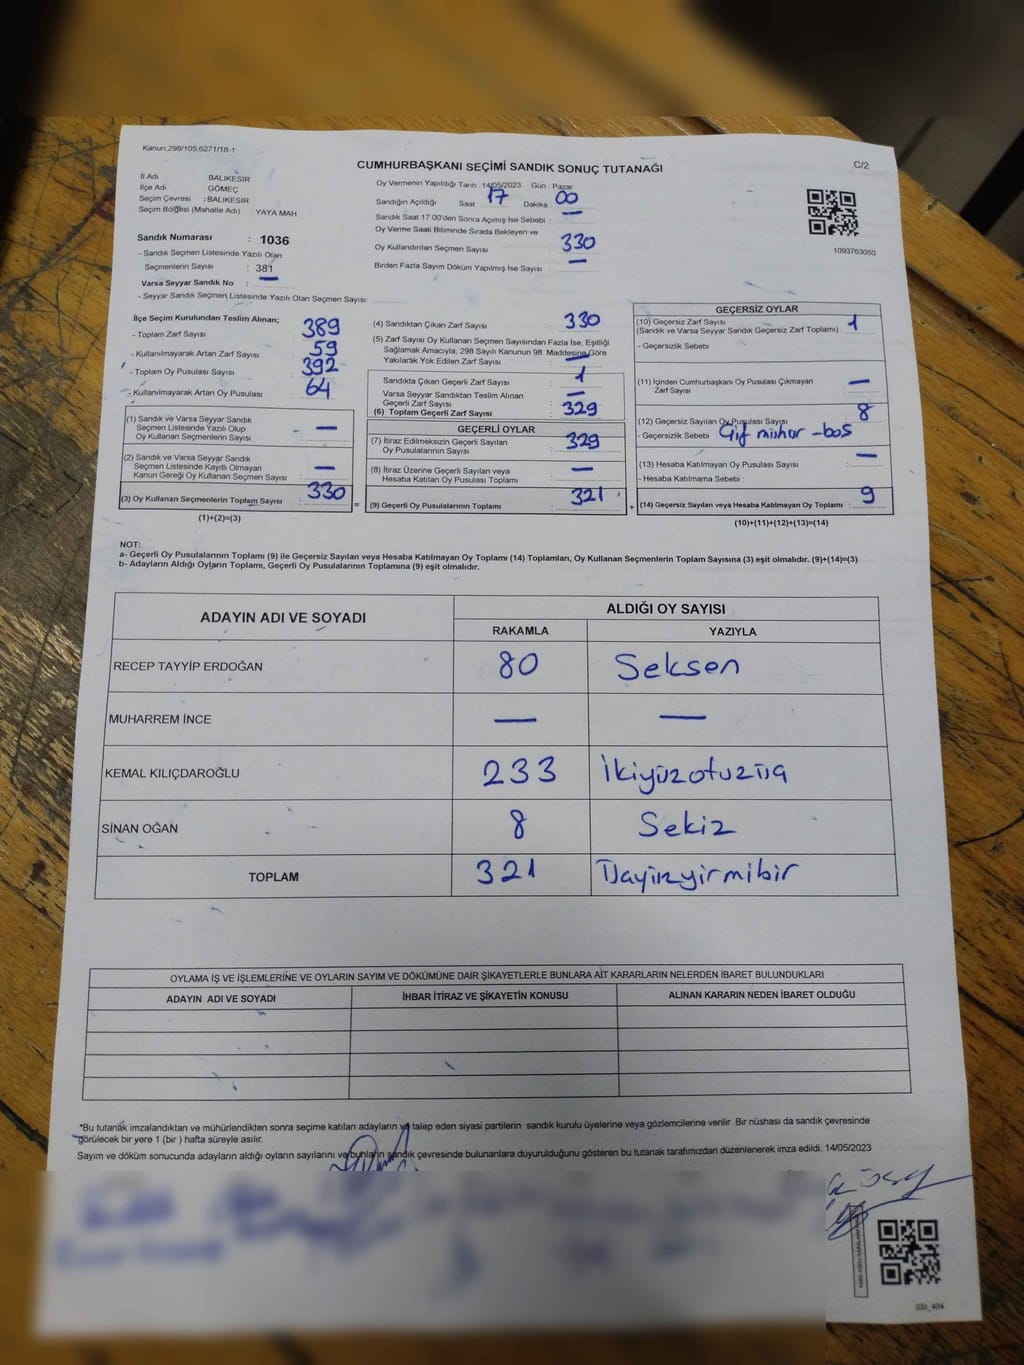 Kanun:298/105;6271/18-1
CUMHURBAŞKANI SEÇİMİ SANDIK SONUÇ TUTANAĞI
C/2
İl Adı BALIKESİR
İlçe Adı GÖMEÇ
Seçim Çevresi : BALIKESİR
Seçim Bölgesi (Mahalle Adı) YAYA MAH
Sandık Numarası : 1036
- Sandık Seçmen Listesinde Yazılı Olan
Seçmenlerin Sayısı : 381
Varsa Seyyar Sandık No : —
- Seyyar Sandık Seçmen Listesinde Yazılı Olan Seçmen Sayısı:
Oy Vermenin Yapıldığı Tarih :14/05/2023 Gün : Pazar
Sandığın Açıldığı Saat 17 Dakika 00
Sandık Saat 17:00'den Sonra Açımış İse Sebebi : —
Oy Verme Saati Bitiminde Sırada Bekleyen ve
Oy Kullandırılan Seçmen Sayısı 330
Birden Fazla Sayım Döküm Yapılmış İse Sayısı : —
1093763050
İlçe Seçim Kurulundan Teslim Alınan;
- Toplam Zarf Sayısı 389
- Kullanılmayarak Artan Zarf Sayısı 59
- Toplam Oy Pusulası Sayısı 392
- Kullanılmayarak Artan Oy Pusulası 64
(1) Sandık ve Varsa Seyyar Sandık
Seçmen Listesinde Yazılı Olup
Oy Kullanan Seçmenlerin Sayısı —
(2) Sandık ve Varsa Seyyar Sandık
Seçmen Listesinde Kayıtlı Olmayan
Kanun Gereği Oy Kullanan Seçmen Sayısı —
(3) Oy Kullanan Seçmenlerin Toplam Sayısı 330
(1)+(2)=(3)
(4) Sandıktan Çıkan Zarf Sayısı 330
(5) Zarf Sayısı Oy Kullanan Seçmen Sayısından Fazla İse, Eşitliği
Sağlamak Amacıyla; 298 Sayılı Kanunun 98. Maddesine Göre
Yakılarak Yok Edilen Zarf Sayısı —
Sandıkta Çıkan Geçerli Zarf Sayısı 1
Varsa Seyyar Sandıktan Teslim Alınan
Geçerli Zarf Sayısı —
(6) Toplam Geçerli Zarf Sayısı 329
GEÇERLİ OYLAR
(7) İtiraz Edilmeksizin Geçerli Sayılan
Oy Pusulalarının Sayısı 329
(8) İtiraz Üzerine Geçerli Sayılan veya
Hesaba Katılan Oy Pusulası Toplamı —
= (9) Geçerli Oy Pusulalarının Toplamı 321
GEÇERSİZ OYLAR
(10) Geçersiz Zarf Sayısı 1
(Sandık ve Varsa Seyyar Sandık Geçersiz Zarf Toplamı)
- Geçersizlik Sebebi
(11) İçinden Cumhurbaşkanı Oy Pusulası Çıkmayan
Zarf Sayısı —
(12) Geçersiz Sayılan Oy Pusulası Sayısı 8
- Geçersizlik Sebebi Çift mühür -boş
(13) Hesaba Katılmayan Oy Pusulası Sayısı —
- Hesaba Katılmama Sebebi :
+ (14) Geçersiz Sayılan veya Hesaba Katılmayan Oy Toplamı 9
(10)+(11)+(12)+(13)=(14)
NOT:
a- Geçerli Oy Pusulalarının Toplamı (9) ile Geçersiz Sayılan veya Hesaba Katılmayan Oy Toplamı (14) Toplamları, Oy Kullanan Seçmenlerin Toplam Sayısına (3) eşit olmalıdır. (9)+(14)=(3)
b- Adayların Aldığı Oyların Toplamı, Geçerli Oy Pusulalarının Toplamına (9) eşit olmalıdır.
ADAYIN ADI VE SOYADI ALDIĞI OY SAYISI
RAKAMLA YAZIYLA
RECEP TAYYİP ERDOĞAN 80 Seksen
MUHARREM İNCE — —
KEMAL KILIÇDAROĞLU 233 İkiyüzotuzüç
SİNAN OĞAN 8 Sekiz
TOPLAM 321 Üçyüzyirmibir
OYLAMA İŞ VE İŞLEMLERİNE VE OYLARIN SAYIM VE DÖKÜMÜNE DAİR ŞİKAYETLERLE BUNLARA AİT KARARLARIN NELERDEN İBARET BULUNDUKLARI
ADAYIN ADI VE SOYADI İHBAR İTİRAZ VE ŞİKAYETİN KONUSU ALINAN KARARIN NEDEN İBARET OLDUĞU
*Bu tutanak imzalandıktan ve mühürlendikten sonra seçime katılan adayların ve talep eden siyasi partilerin sandık kurulu üyelerine veya gözlemcilerine verilir. Bir nüshası da sandık çevresinde
görülecek bir yere 1 (bir ) hafta süreyle asılır.
Sayım ve döküm sonucunda adayların aldığı oyların sayılarını ve bunların sandık çevresinde bulunanlara duyurulduğunu gösteren bu tutanak tarafımızdan düzenlenerek imza edildi. 14/05/2023